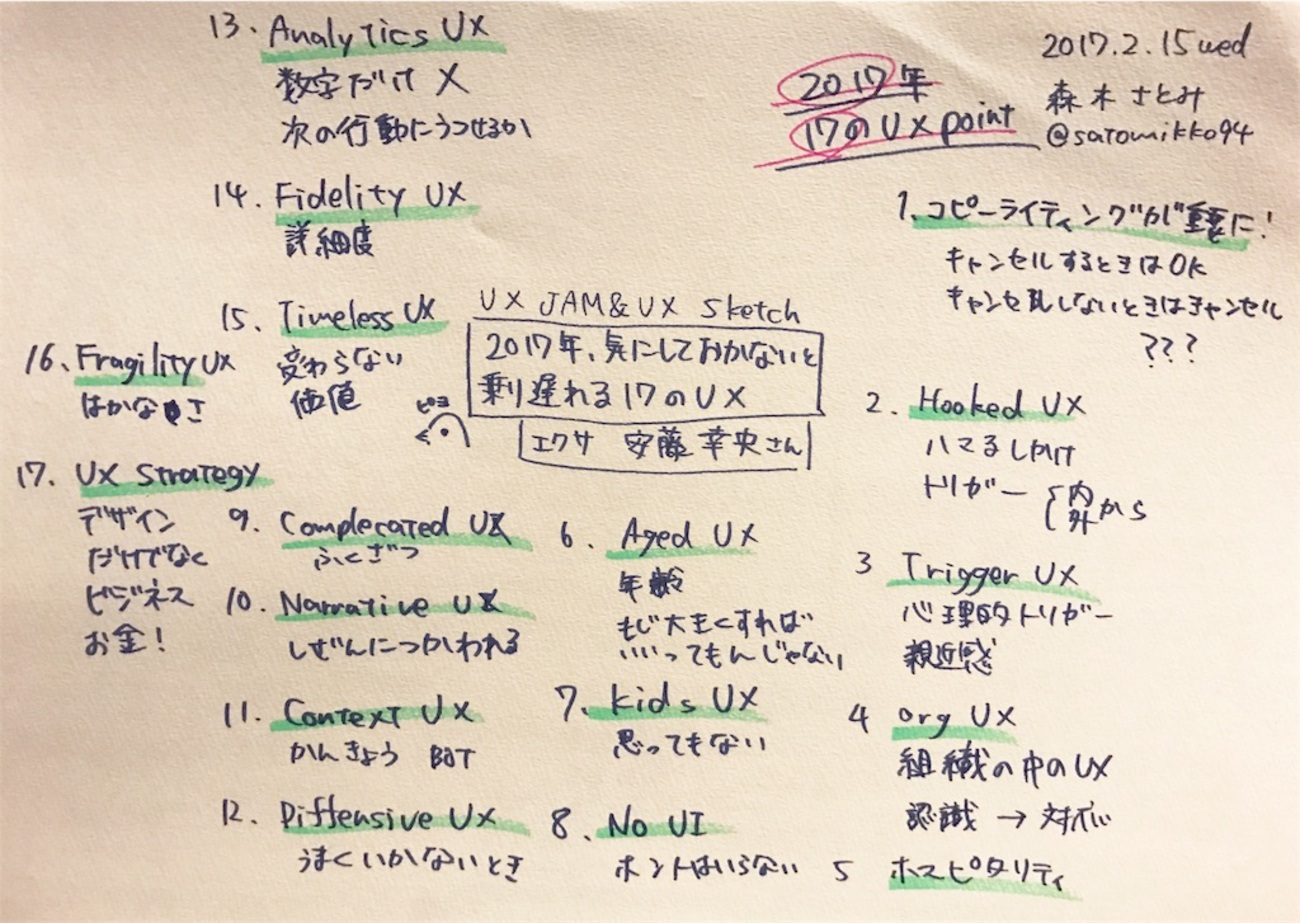 2017.2.15 wed
森木さとみ
@satomikko94
2017年
17のUX point
UX JAM & UX Sketch
2017年、気にしておかないと
乗り遅れる17のUX
エクサ 安藤幸央さん
ピヨ
1. コピーライティングが重要に!
キャンセルするときはOK
キャンセルしないときはキャンセル
???
2. Hooked UX
ハマるしかけ
トリガー {内外から
3 Trigger UX
心理的トリガー
親近感
4 org UX
組織の中のUX
認識 → 対応
5 ホスピタリティ
6. Aged UX
年齢
もじ大きくすれば
いいってもんじゃない
7. kids UX
思ってもない
8. No UI
ホントはいらない
9. Complecated UX
ふくざつ
10. Narrative UX
しぜんにつかわれる
11. Context UX
かんきょう BOT
12. Diffensive UX
うまくいかないとき
13. Analytics UX
数字だけ X
次の行動にうつせるか
14. Fidelity UX
詳細度
15. Timeless UX
変わらない
価値
16. Fragility UX
はかなさ
17. UX Strategy
デザイン
だけでなく
ビジネス
お金!